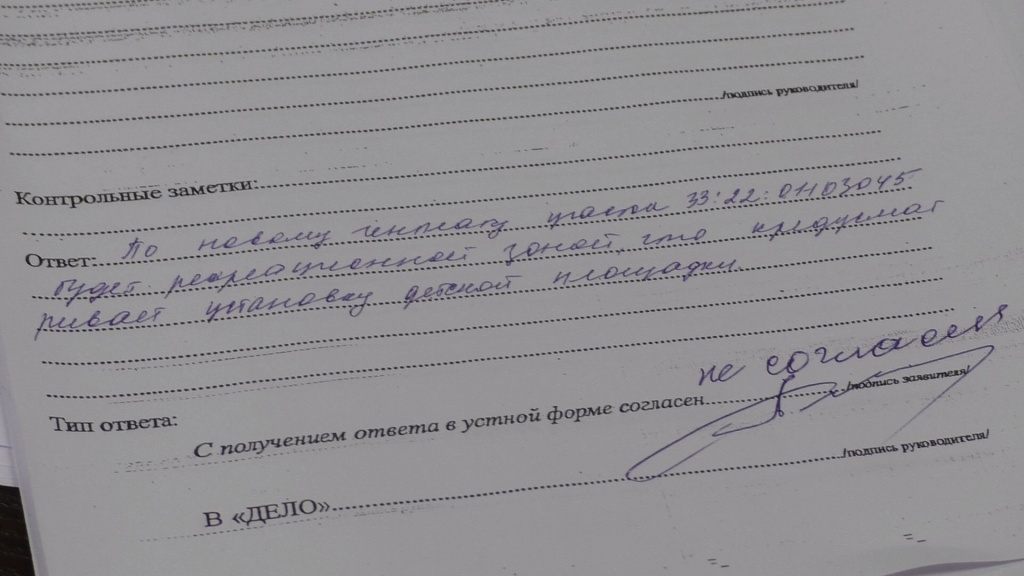 /подпись руководителя/
Контрольные заметки:
Ответ: По новому генплану участок 33:22:0110З045
будет рекреационной зоной что предусмат
ривает установку детской площадки
Тип ответа:
не согласен
С получением ответа в устной форме согласен /подпись заявителя/
В «ДЕЛО» /подпись руководителя/